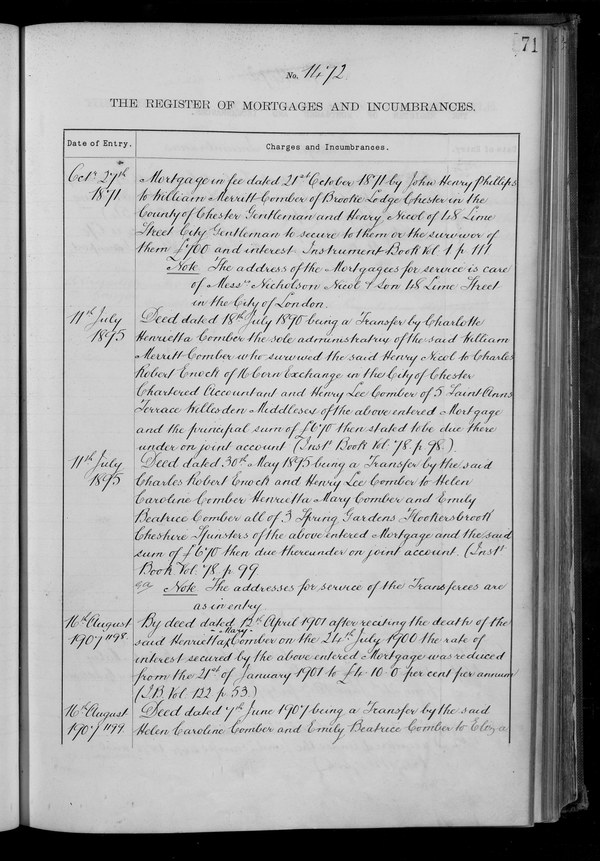 71
No. 1472.
THE REGISTER OF MORTGAGES AND INCUMBRANCES.
Date of Entry. Charges and Incumbrances.
Octr. 27th Mortgage in fee dated 21st October 1871 by John Henry Phillips
1871 to William Merritt Comber of Brooke Lodge Chester in the
County of Chester Gentleman and Henry Nicol of 48 Lime
Street City Gentleman to secure to them or the survivor of
them £700 and interest Instrument Book Vol 1 p 111
Note The address of the Mortgagees for service is care
of Messrs Nicholson Nicol & Son 48 Lime Street
in the City of London.
11th July Deed dated 18th July 1890 being a Transfer by Charlotte
1895 Henrietta Comber the sole administratrix of the said William
Merritt Comber who survived the said Henry Nicol to Charles
Robert Enock of 16 Corn Exchange in the City of Chester
Chartered Accountant and Henry Lee Comber of 5 Saint Anns
Terrace Willesden Middlesex of the above entered Mortgage
and the principal sum of £670 then stated to be due there
under on joint account (Inst Book Vol. 78 p. 98.)
11th July Deed dated 30th May 1895 being a Transfer by the said
1895 Charles Robert Enock and Henry Lee Comber to Helen
Caroline Comber Henrietta Mary Comber and Emily
Beatrice Comber all of 3 Spring Gardens Hookersbrook
Cheshire Spinsters of the above entered Mortgage and the said
sum of £670 then due thereunder on joint account. (Inst
Book Vol. 78 p 99
Note The addresses for service of the Transferees are
as in entry
16th August By deed dated 12th April 1901 after reciting the death of the
1907 1198 said Henrietta Mary Comber on the 24th July 1900 the rate of
interest secured by the above entered Mortgage was reduced
from the 21st of January 1901 to £4.10.0 per cent per annum
(I.B. Vol. 122 p. 53.)
16th August Deed dated 7th June 1907 being a Transfer by the said
1907 1199 Helen Caroline Comber and Emily Beatrice Comber to Eliza